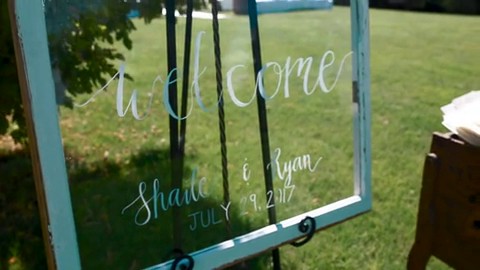 welcome
& Ryan
JULY 29, 2017